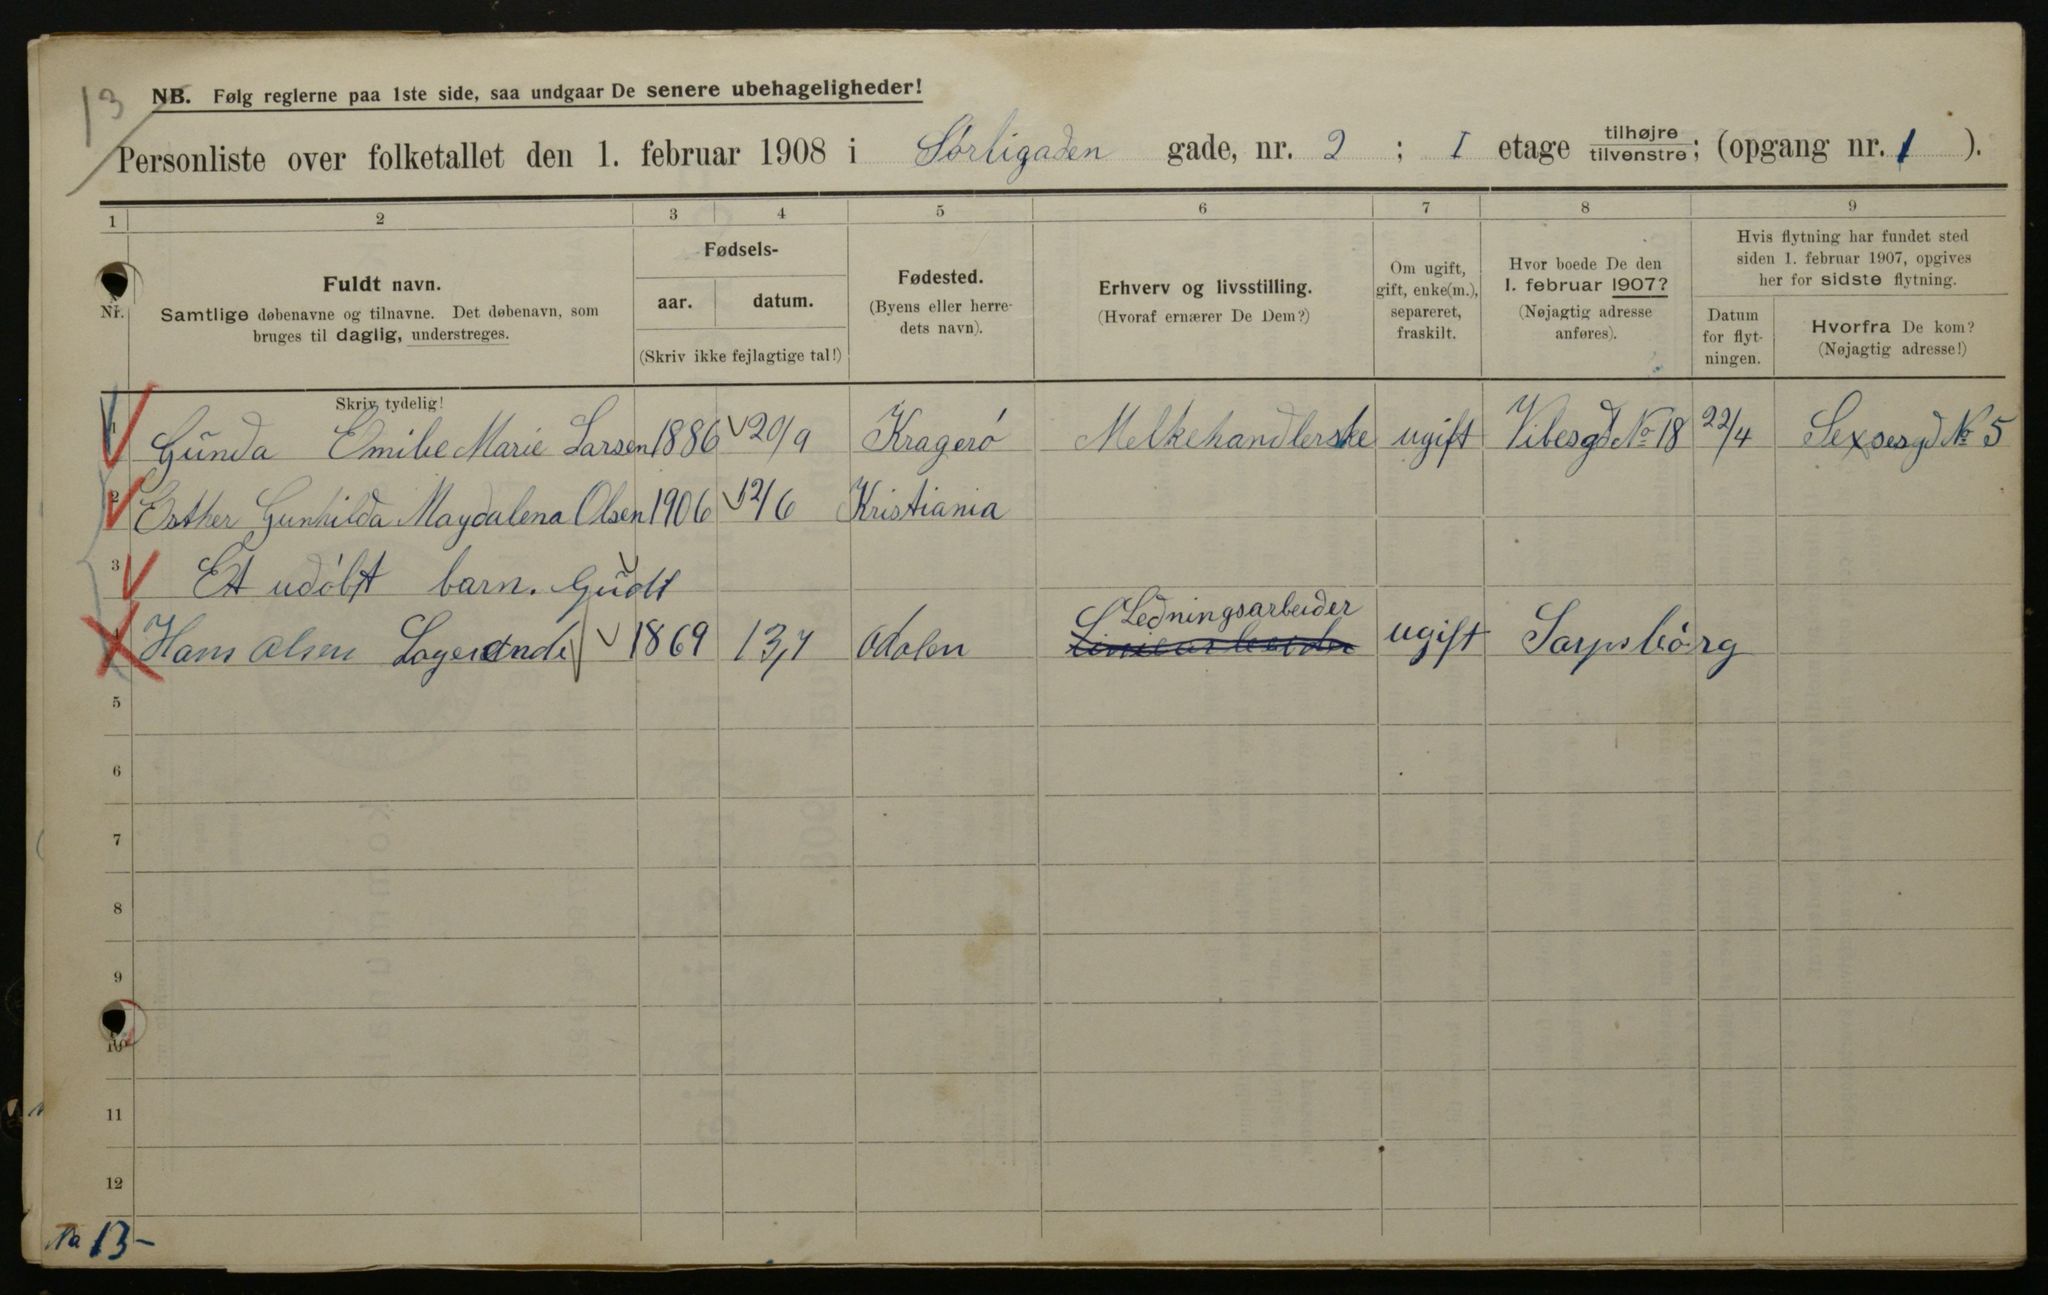 13
NB. Følg reglerne paa 1ste side, saa undgaar De senere ubehageligheder!
Personliste over folketallet den 1. februar 1908 i Sørligaden gade, nr. 2 ; I etage tilhøjre tilvenstre; (opgang nr. 1 ).
1 2 3 4 5 6 7 8 9
Nr.
Fuldt navn.
Samtlige døbenavne og tilnavne. Det døbenavn, som
bruges til daglig, understreges.
Skriv tydelig!
Fødsels-
aar. datum.
(Skriv ikke fejlagtige tal!)
Fødested.
(Byens eller herre-
dets navn).
Erhverv og livsstilling.
(Hvoraf ernærer De Dem?)
Om ugift,
gift, enke(m.),
separeret,
fraskilt.
Hvor boede De den
1. februar 1907?
(Nøjagtig adresse
anføres).
Hvis flytning har fundet sted
siden 1. februar 1907, opgives
her for sidste flytning.
Datum
for flyt-
ningen.
Hvorfra De kom?
(Nøjagtig adresse!)
1 Gunda Emilie Marie Larsen 1886 20/9 Kragerö Melkehandlerske ugift Vibesgd No 18 22/4 Sexsesgd No 5
2 Esther Gunhilda Magdalena Olsen 1906 12/6 Kristiania
3 Et udöbt barn. Gudt
Ledningsarbeider
4 Hans Olsen 1869 13/7 Odalen ugift Sarpsborg
5
6
7
8
9
10
11
12
13-